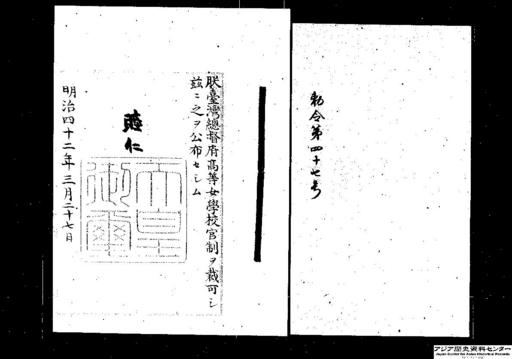 勅令第四十七号
朕臺灣總督府高等女學校官制ヲ裁可シ
茲ニ之ヲ公布セシム
睦仁
天皇御璽
明治四十二年三月二十七日
アジア歴史資料センター
Japan Center for Asian Historical Records